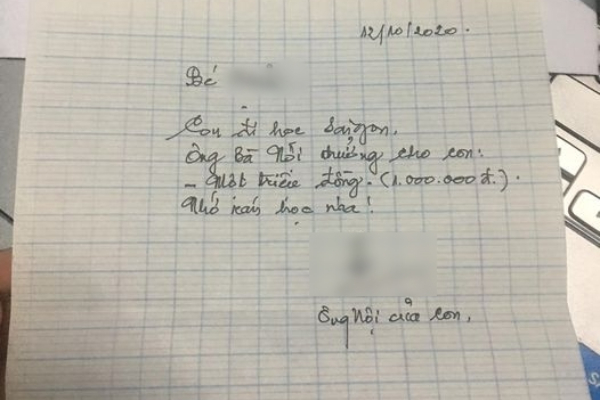 12/10/2020.
Bé
Con đi học Saigon.
Ông Bà Nội thưởng cho con:
- Một triệu đồng. (1.000.000đ.).
Nhớ ráng học nha!
Ông Nội của con,